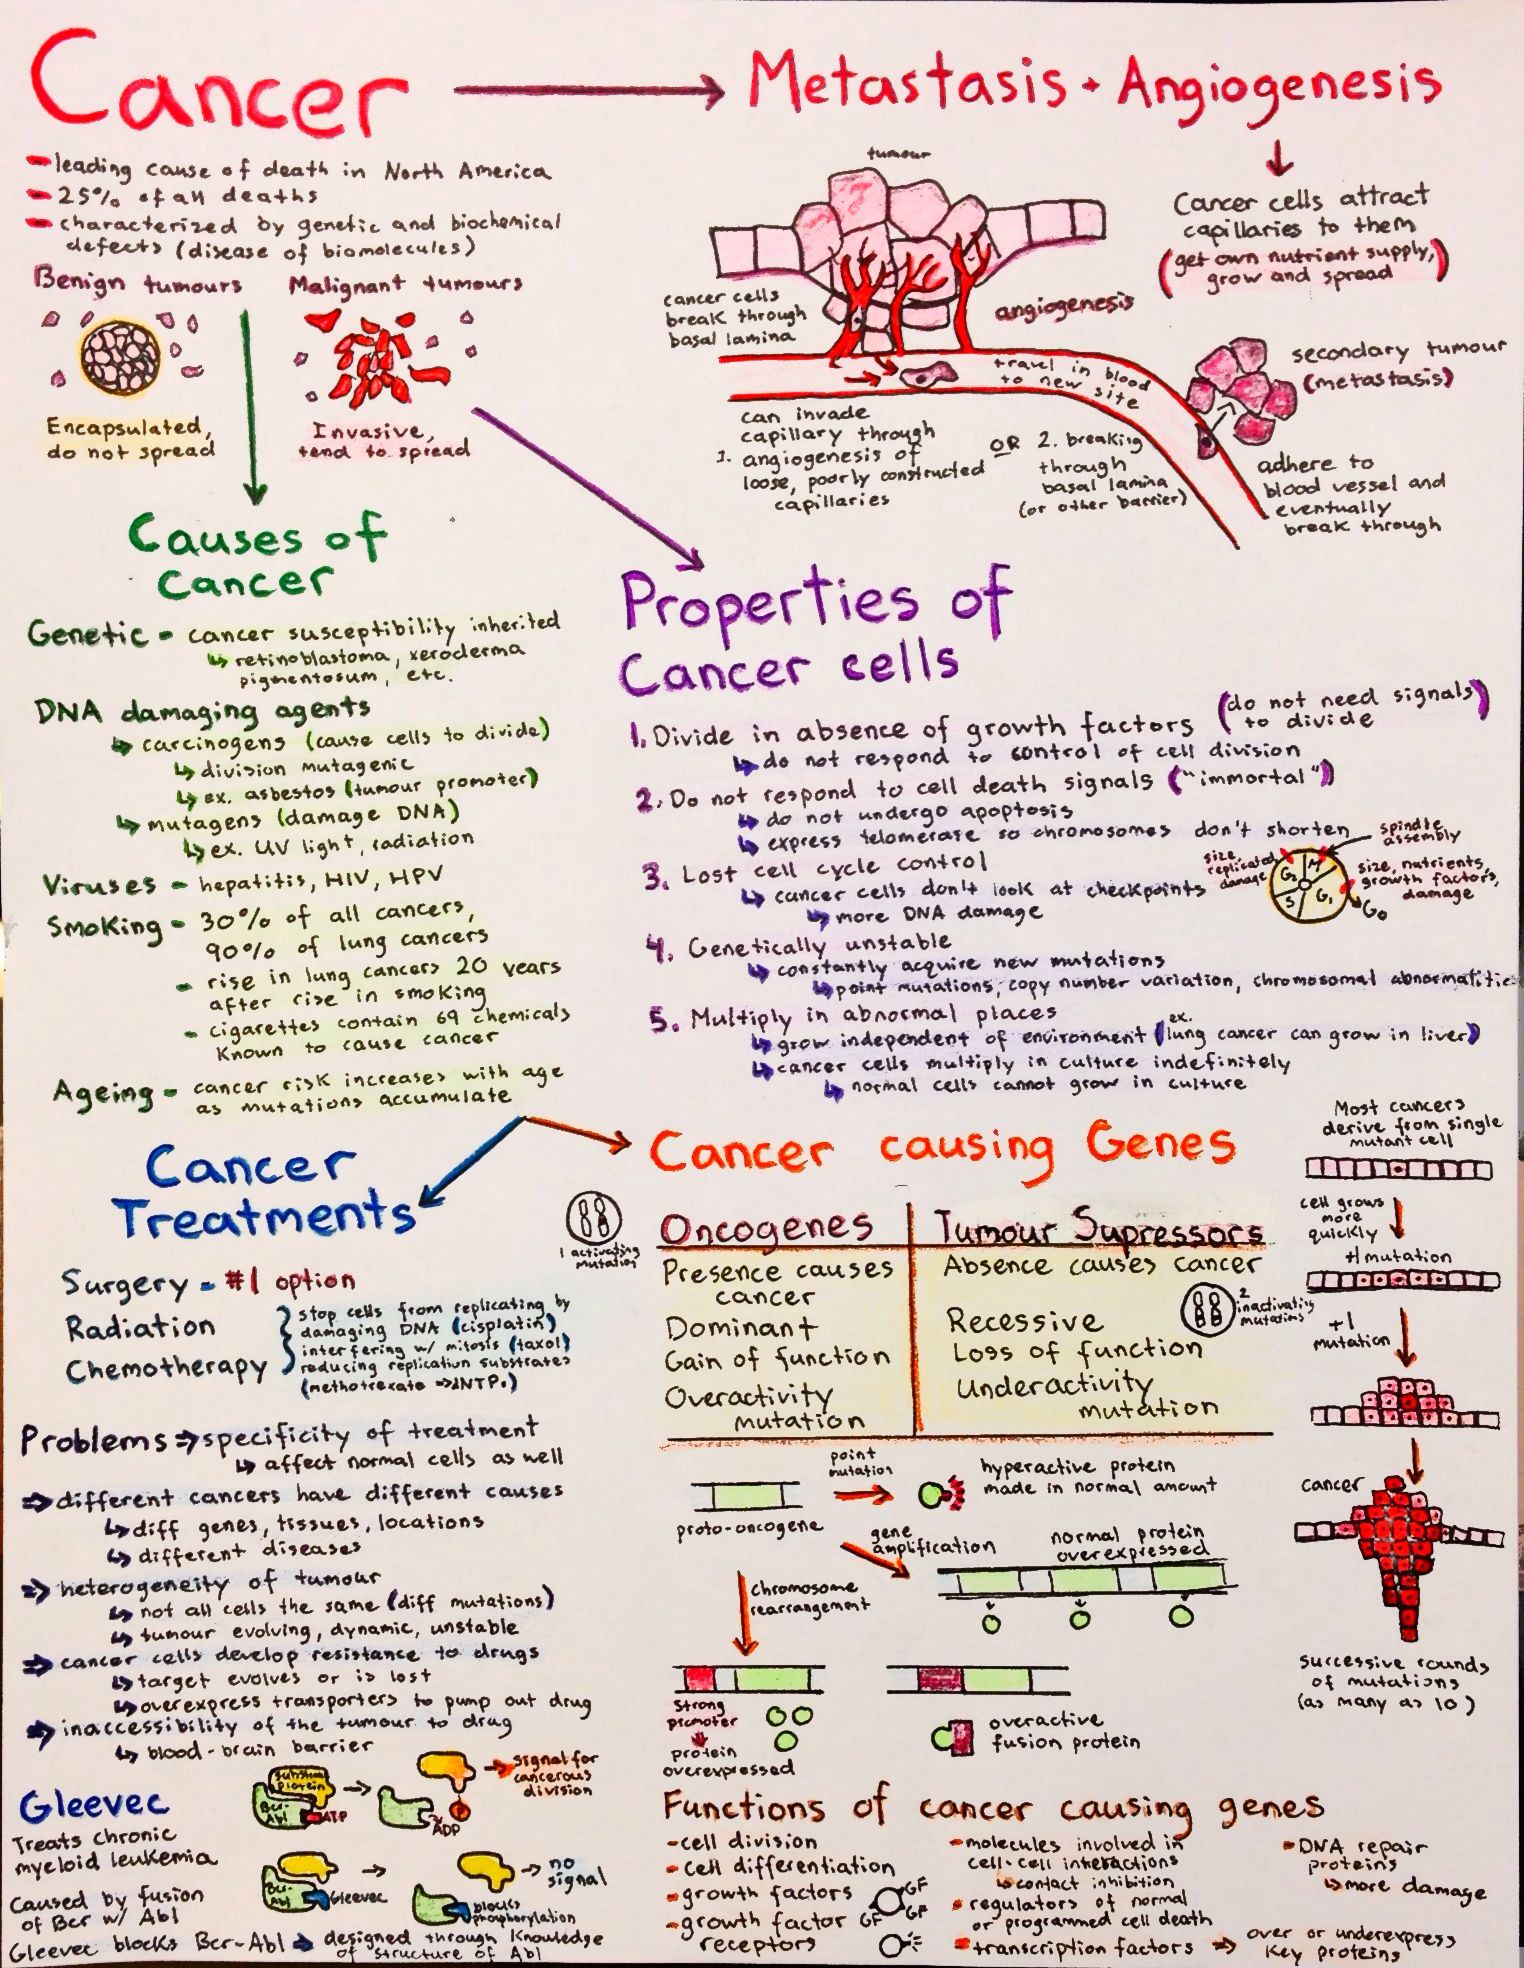 Cancer
Metastasis + Angiogenesis
- leading cause of death in North America
- 25% of all deaths
- characterized by genetic and biochemical
defects (disease of biomolecules)
Benign tumours
Malignant tumours
Encapsulated,
do not spread
Invasive,
tend to spread
tumour
Cancer cells attract
capillaries to them
(get own nutrient supply,
grow and spread)
cancer cells
break through
basal lamina
angiogenesis
travel in blood
to new site
secondary tumour
(metastasis)
can invade
capillary through
1. angiogenesis of
loose, poorly constructed
capillaries
OR
2. breaking
through
basal lamina
(or other barrier)
adhere to
blood vessel and
eventually
break through
Causes of
cancer
Genetic - cancer susceptibility inherited
↳ retinoblastoma, xeroderma
pigmentosum, etc.
DNA damaging agents
↳ carcinogens (cause cells to divide)
↳ division mutagenic
↳ ex. asbestos (tumour promoter)
↳ mutagens (damage DNA)
↳ ex. UV light, radiation
Viruses - hepatitis, HIV, HPV
Smoking - 30% of all cancers,
90% of lung cancers
- rise in lung cancers 20 years
after rise in smoking
- cigarettes contain 69 chemicals
known to cause cancer
Ageing - cancer risk increases with age
as mutations accumulate
Properties of
Cancer cells
1. Divide in absence of growth factors (do not need signals
to divide)
↳ do not respond to control of cell division
2. Do not respond to cell death signals ("immortal")
↳ do not undergo apoptosis
↳ express telomerase so chromosomes don't shorten
3. Lost cell cycle control
↳ cancer cells don't look at checkpoints
↳ more DNA damage
spindle
assembly
size,
replicated
damage
G2
M
S
G1
G0
size, nutrients,
growth factors,
damage
4. Genetically unstable
↳ constantly acquire new mutations
↳ point mutations, copy number variation, chromosomal abnormalities
5. Multiply in abnormal places
↳ grow independent of environment (ex. lung cancer can grow in liver)
↳ cancer cells multiply in culture indefinitely
↳ normal cells cannot grow in culture
Cancer
Treatments
Surgery - #1 option
Radiation
Chemotherapy
stop cells from replicating by
damaging DNA (cisplatin)
interfering w/ mitosis (taxol)
reducing replication substrates
(methotrexate → dNTPs)
Problems ⇒ specificity of treatment
↳ affect normal cells as well
⇒ different cancers have different causes
↳ diff genes, tissues, locations
↳ different diseases
⇒ heterogeneity of tumour
↳ not all cells the same (diff mutations)
↳ tumour evolving, dynamic, unstable
⇒ cancer cells develop resistance to drugs
↳ target evolves or is lost
↳ overexpress transporters to pump out drug
⇒ inaccessibility of the tumour to drug
↳ blood-brain barrier
Gleevec
Treats chronic
myeloid leukemia
Caused by fusion
of Bcr w/ Abl
Gleevec blocks Bcr-Abl → designed through knowledge
of structure of Abl
protein
Bcr-
Abl
ATP
ADP
signal for
cancerous
division
Bcr-
Abl
Gleevec
blocks
phosphorylation
no
signal
Cancer causing Genes
1 activating
mutation
Oncogenes
Presence causes
cancer
Dominant
Gain of function
Overactivity
mutation
Tumour Supressors
Absence causes cancer
Recessive
Loss of function
Underactivity
mutation
2
inactivating
mutations
proto-oncogene
point
mutation
hyperactive protein
made in normal amount
gene
amplification
normal protein
overexpressed
chromosome
rearrangement
strong
promoter
protein
overexpressed
overactive
fusion protein
Most cancers
derive from single
mutant cell
cell grows
more
quickly
+1 mutation
+1
mutation
cancer
successive rounds
of mutations
(as many as 10)
Functions of cancer causing genes
- cell division
- cell differentiation
- growth factors
- growth factor
receptors
GF
GF
GF
- molecules involved in
cell-cell interactions
↳ contact inhibition
- regulators of normal
or programmed cell death
- transcription factors ⇒ over or underexpress
key proteins
- DNA repair
proteins
↳ more damage